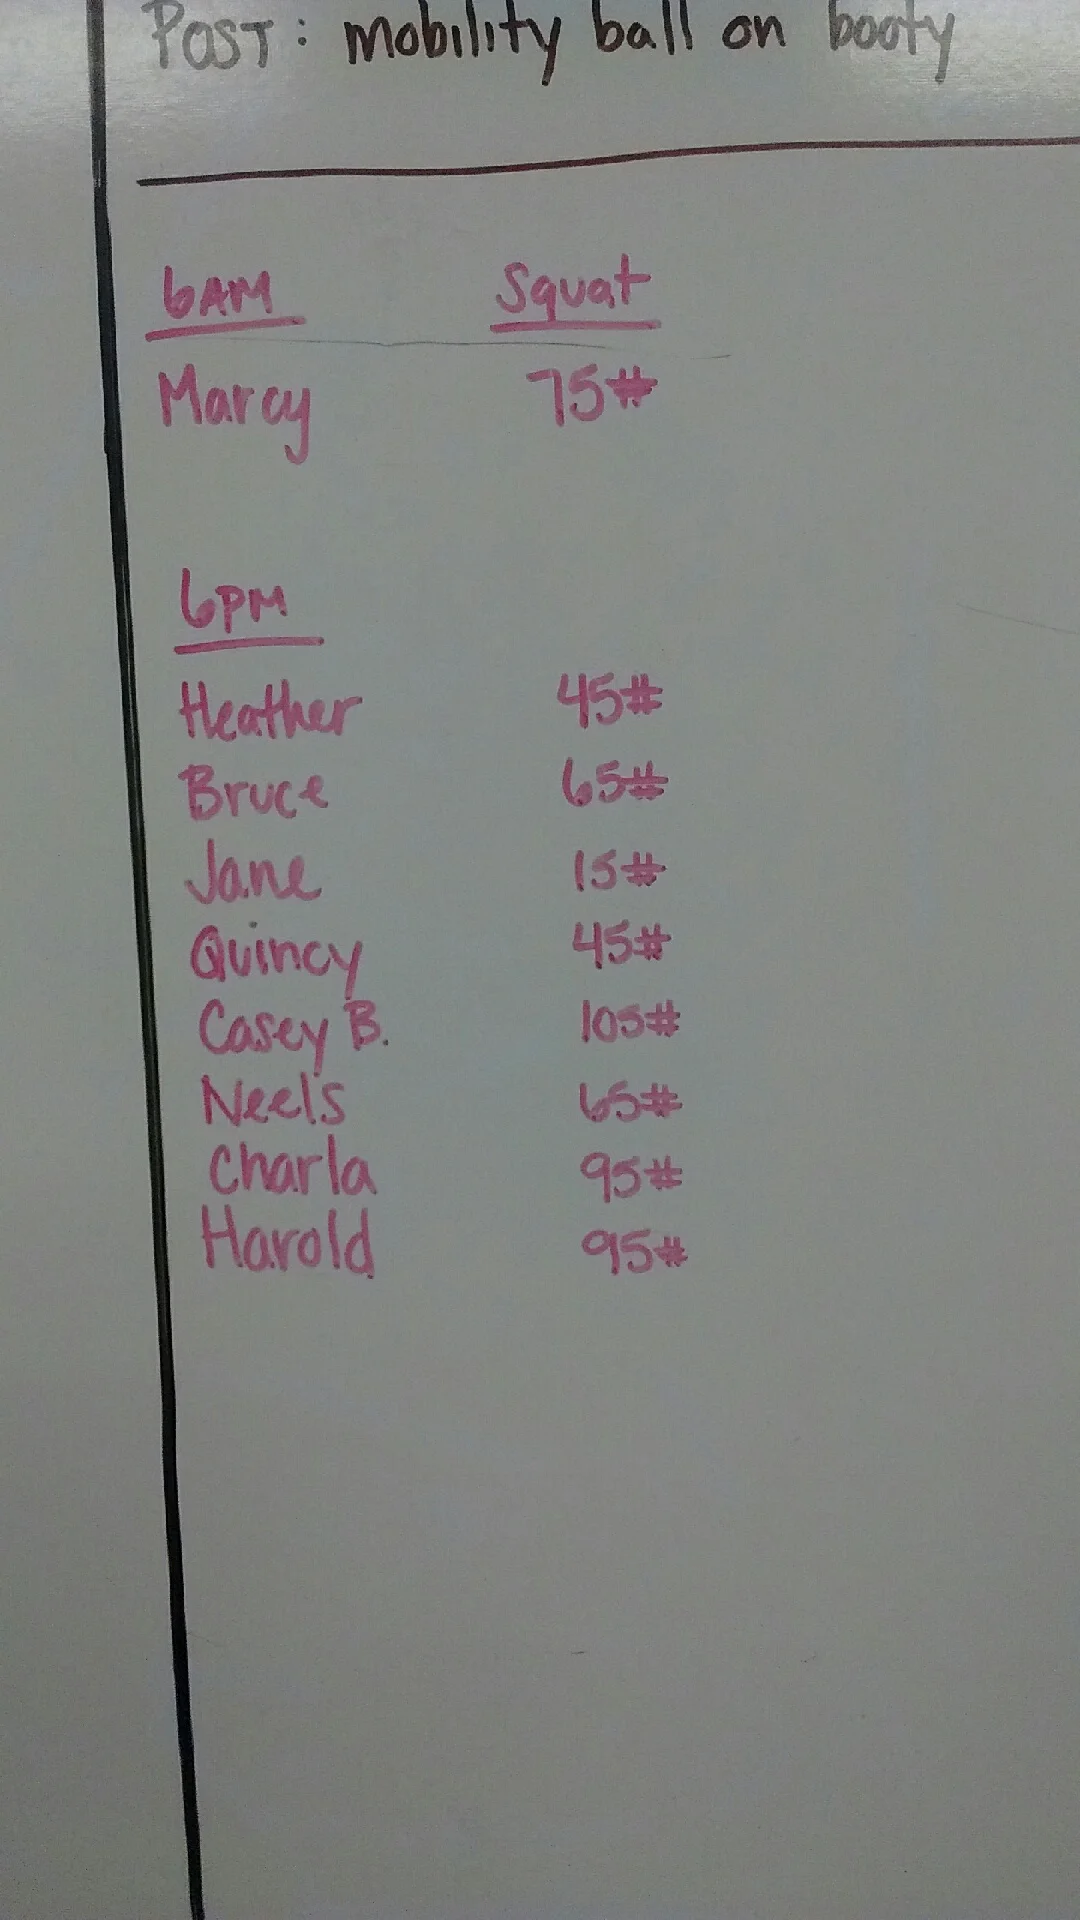 POST: mobility ball on booty
6AM Squat
Marcy 75#
6PM
Heather 45#
Bruce 65#
Jane 15#
Quincy 45#
Casey B. 105#
Neels 65#
Charla 95#
Harold 95#